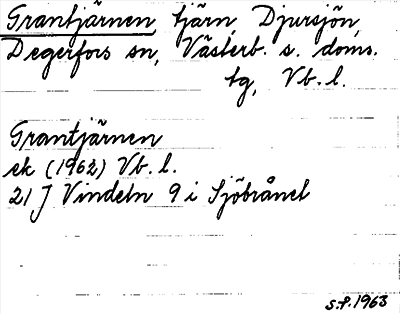 Grantjärnen, tjärn, Djursjön,
Degerfors sn, Västerb. s. doms.
tg, Vb. l.
Grantjärnen
ek (1962) Vb. l.
21 J Vindeln 9 i Sjöbrånet
S.P. 1963